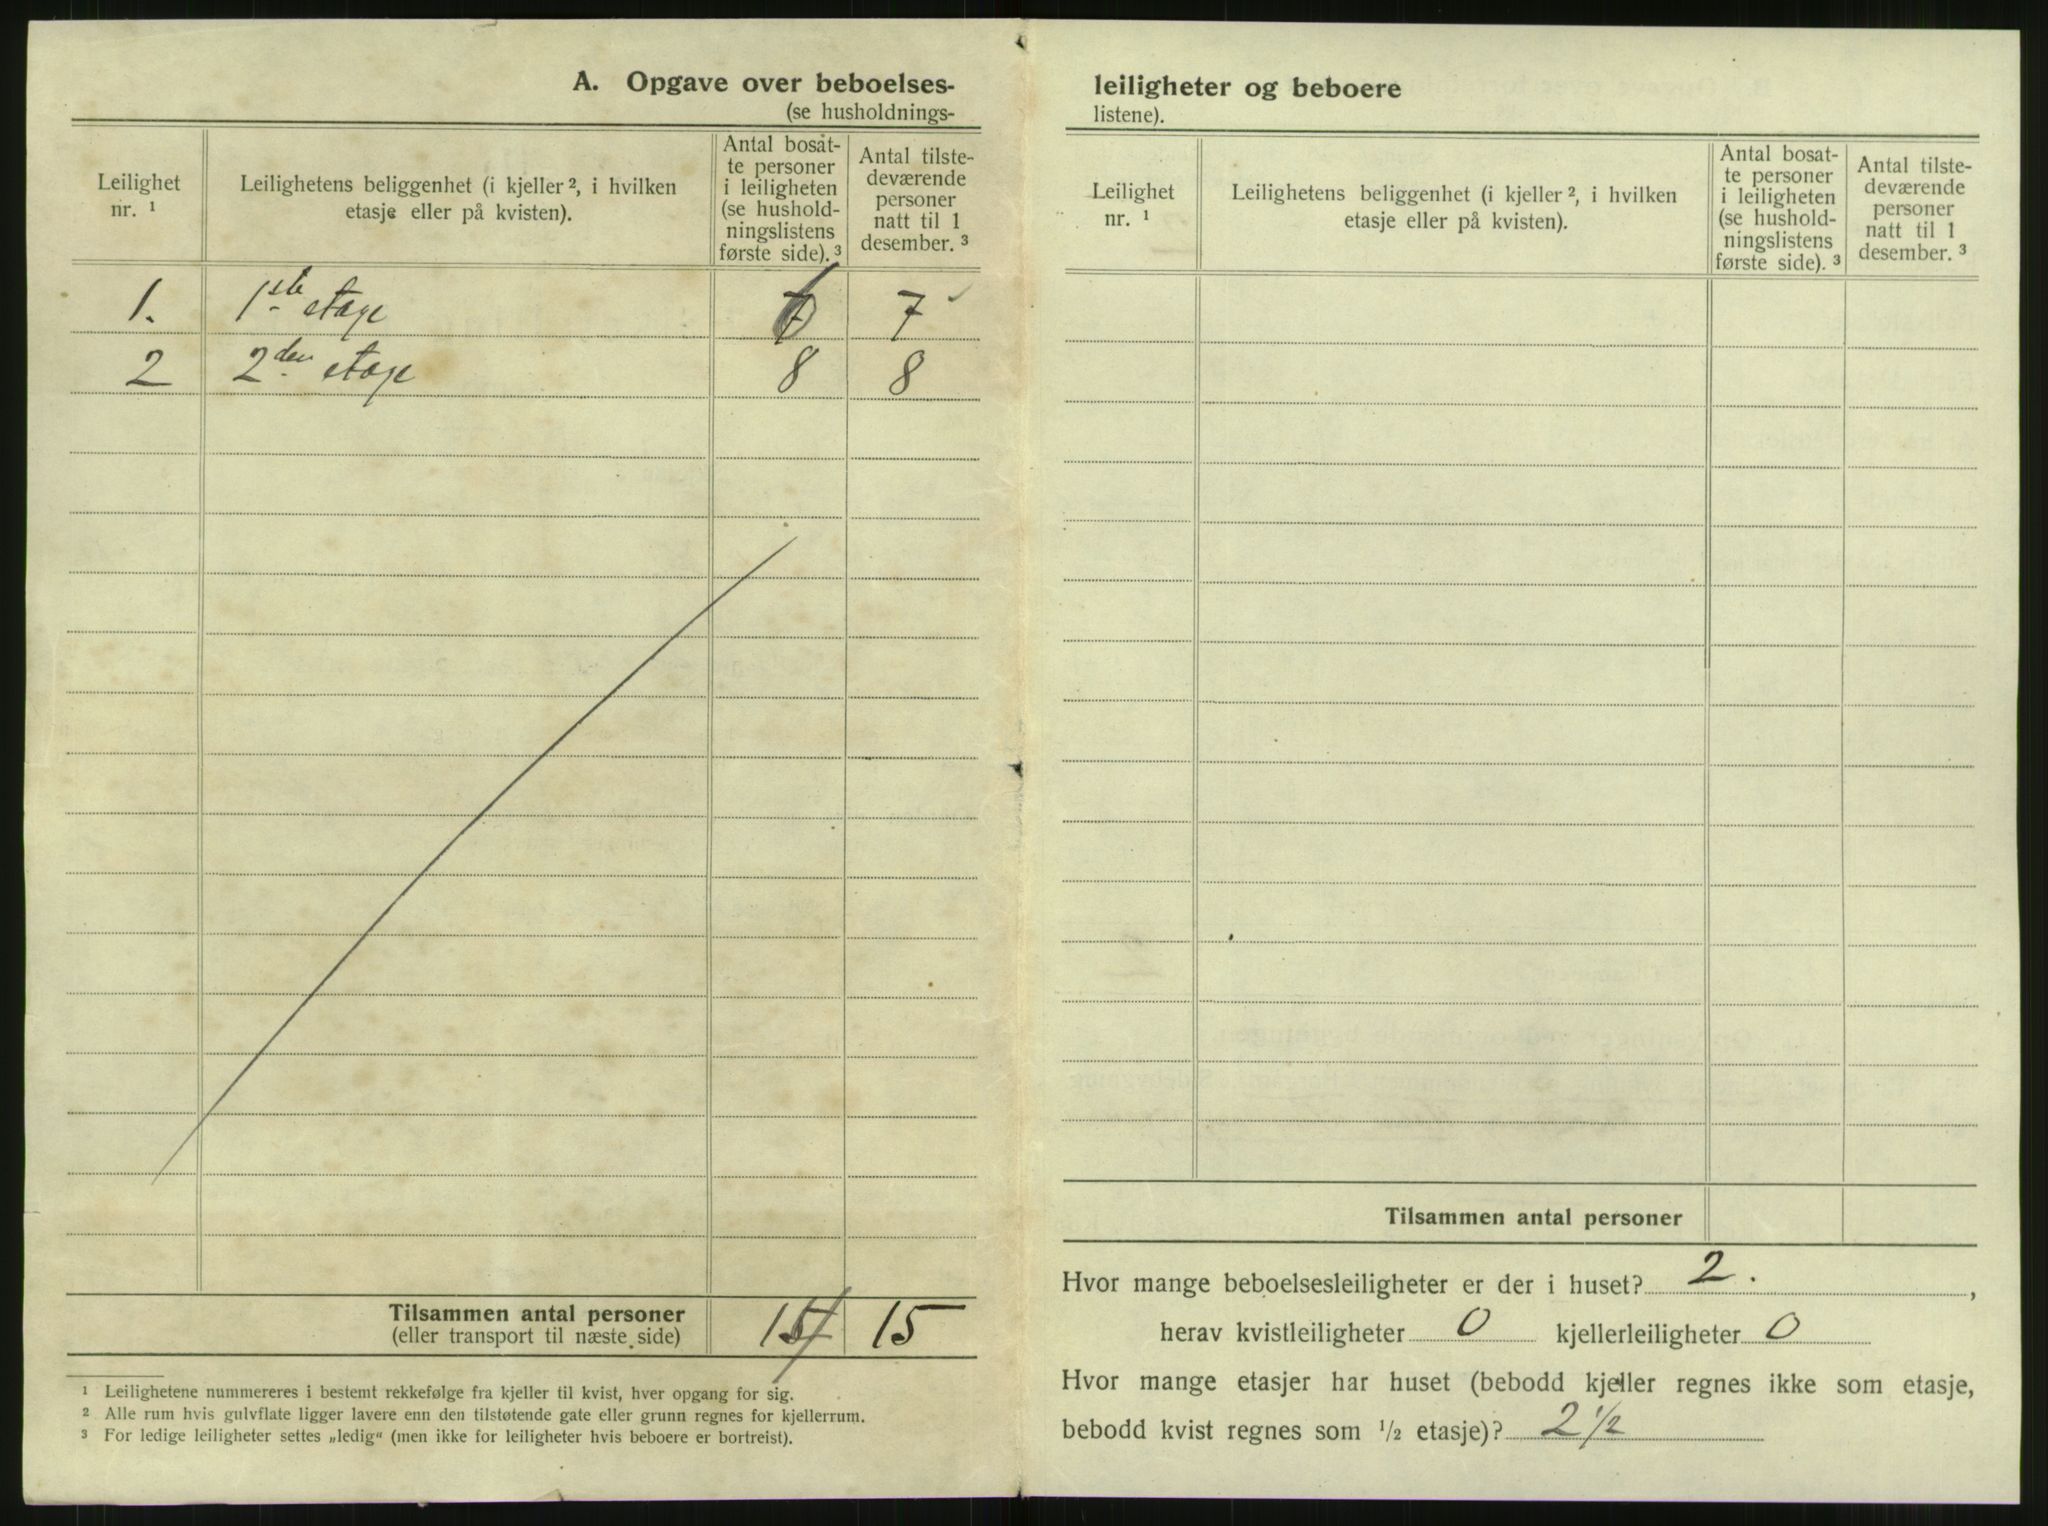 A. Opgave over beboelses-
(se husholdnings-
Leilighet
nr. ¹
Leilighetens beliggenhet (i kjeller ², i hvilken
etasje eller på kvisten).
Antal bosat-
te personer
i leiligheten
(se hushold-
ningslistens
første side). ³
Antal tilste-
deværende
personer
natt til 1
desember. ³
1. 1ste etage 7
2 2den etage 8 8
Tilsammen antal personer 15
(eller transport til næste side)
¹ Leilighetene nummereres i bestemt rekkefølge fra kjeller til kvist, hver opgang for sig.
² Alle rum hvis gulvflate ligger lavere enn den tilstøtende gate eller grunn regnes for kjellerrum.
³ For ledige leiligheter settes „ledig“ (men ikke for leiligheter hvis beboere er bortreist).
leiligheter og beboere
listene).
Leilighet
nr. ¹
Leilighetens beliggenhet (i kjeller ², i hvilken
etasje eller på kvisten).
Antal bosat-
te personer
i leiligheten
(se hushold-
ningslistens
første side). ³
Antal tilste-
deværende
personer
natt til 1
desember. ³
Tilsammen antal personer
Hvor mange beboelsesleiligheter er der i huset? 2. ,
herav kvistleiligheter 0 kjellerleiligheter 0
Hvor mange etasjer har huset (bebodd kjeller regnes ikke som etasje,
bebodd kvist regnes som ½ etasje)? 2 ½